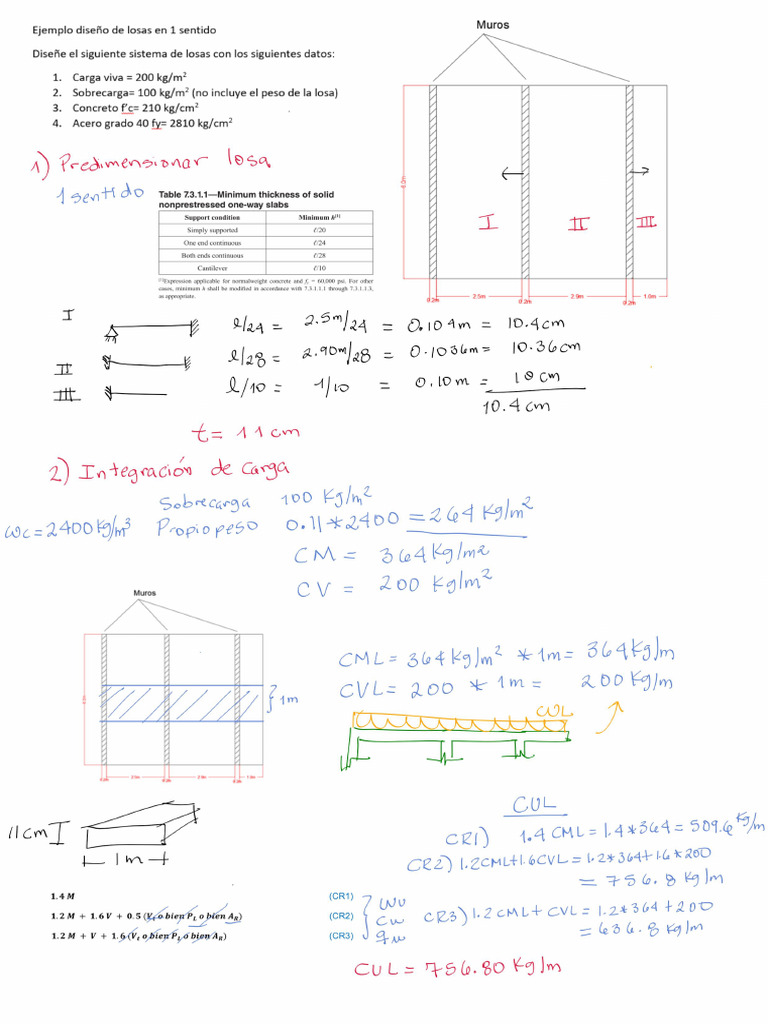 Ejemplo diseño de losas en 1 sentido
Diseñe el siguiente sistema de losas con los siguientes datos:
1. Carga viva = 200 kg/m²
2. Sobrecarga= 100 kg/m² (no incluye el peso de la losa)
3. Concreto f'c= 210 kg/cm²
4. Acero grado 40 fy= 2810 kg/cm²
Muros
I II III
2.5m 2.9m 1.0m
0.2m 0.2m 0.2m
1) Predimensionar losa
1 sentido
Table 7.3.1.1—Minimum thickness of solid
nonprestressed one-way slabs
Support condition Minimum h[1]
Simply supported ℓ/20
One end continuous ℓ/24
Both ends continuous ℓ/28
Cantilever ℓ/10
[1]Expression applicable for normalweight concrete and fy = 60,000 psi. For other
cases, minimum h shall be modified in accordance with 7.3.1.1.1 through 7.3.1.1.3,
as appropriate.
I l/24 = 2.5m/24 = 0.104m = 10.4cm
II l/28 = 2.90m/28 = 0.1036m = 10.36cm
III l/10 = 1/10 = 0.10m = 10cm
10.4cm
t= 11cm
2) Integración de carga
Sobrecarga 100 Kg/m²
wc=2400Kg/m³ Propio peso 0.11*2400 = 264 Kg/m²
CM = 364Kg/m2
CV = 200 Kg/m²
Muros
1m
2.5m 2.9m 1.0m
CML = 364Kg/m² * 1m = 364Kg/m
CVL = 200 * 1m = 200 Kg/m
CUL
11cm
1m
CUL
CR1) 1.4 CML = 1.4*364 = 509.6 Kg/m
CR2) 1.2CML+1.6CVL = 1.2*364+1.6*200
= 756.8 Kg/m
1.4 M (CR1)
1.2 M + 1.6 V + 0.5 (Vt o bien PL o bien AR) (CR2)
1.2 M + V + 1.6 (Vt o bien PL o bien AR) (CR3)
Wu
Cu
qu
CR3) 1.2CML + CVL = 1.2*364 + 200
= 636.8 Kg/m
CUL = 756.80 Kg/m